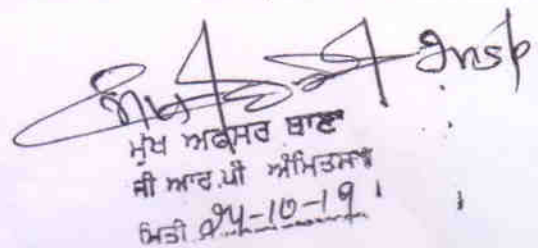 Insp
ਮੁੱਖ ਅਫਸਰ ਥਾਣਾ
ਜੀ ਆਰ.ਪੀ ਅੰਮ੍ਰਿਤਸਰ
ਮਿਤੀ 24-10-19